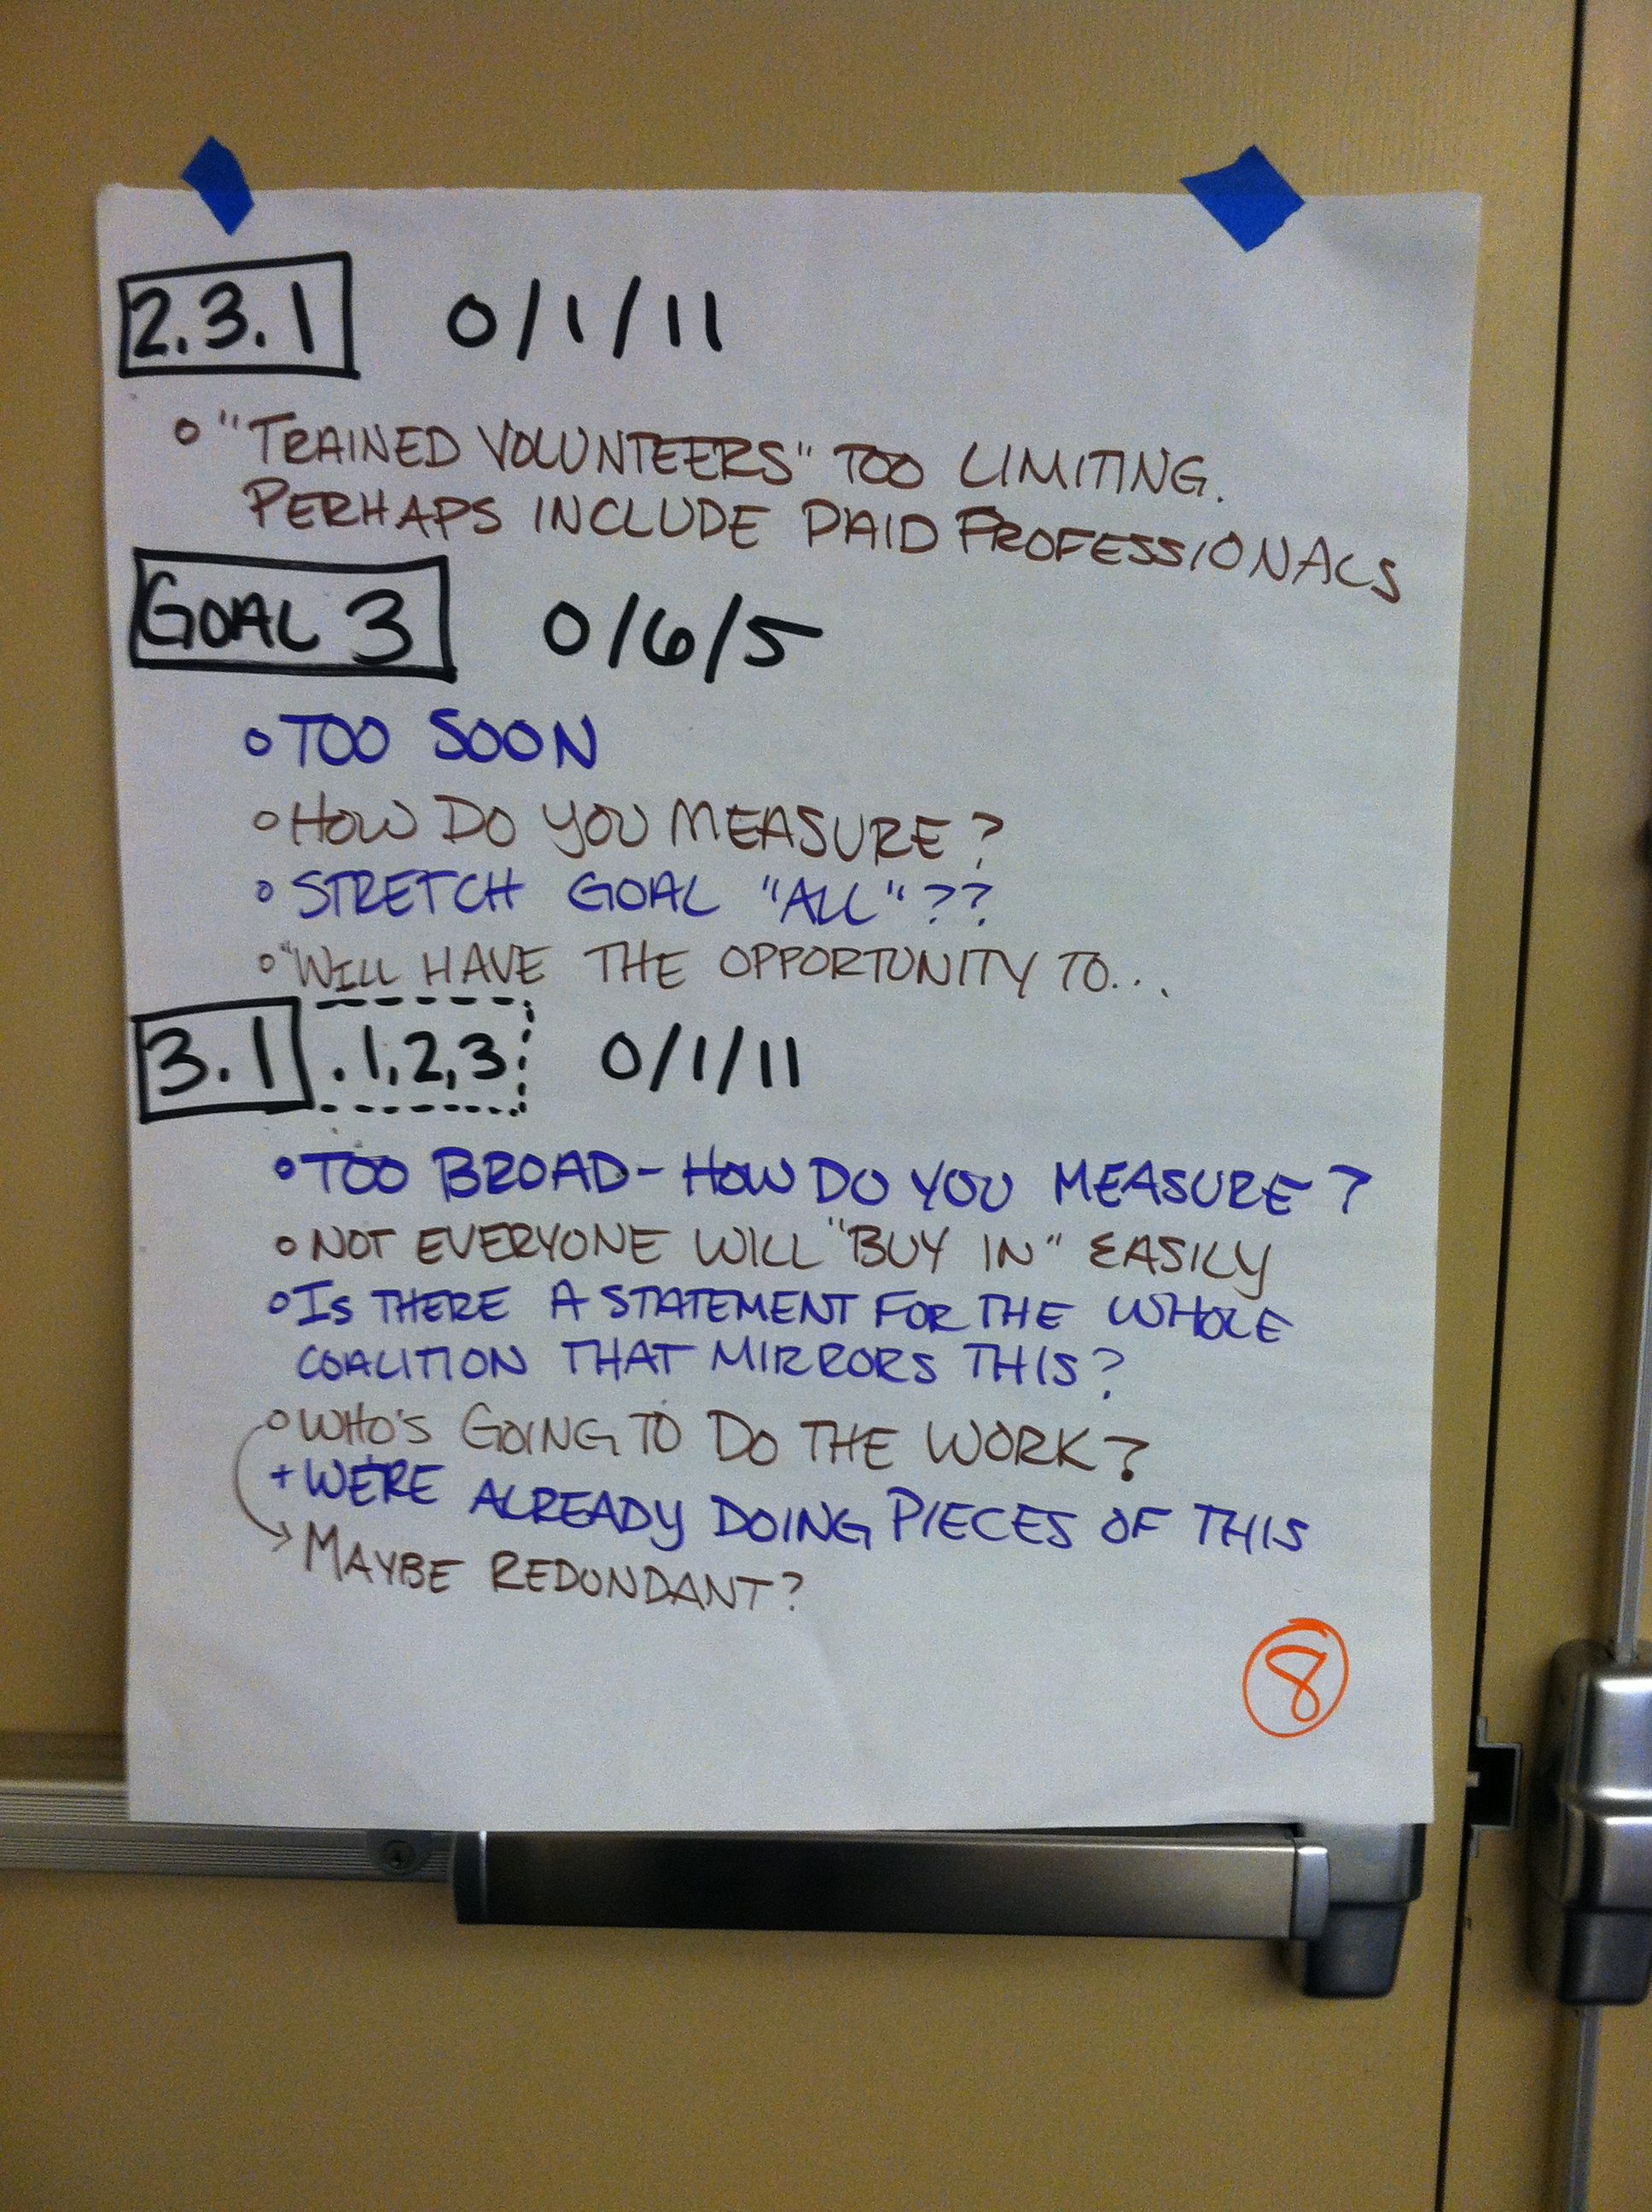 2.3.1 0/1/11
○ "TRAINED VOLUNTEERS" TOO LIMITING.
PERHAPS INCLUDE PAID PROFESSIONALS
GOAL 3 0/6/5
○ TOO SOON
○ HOW DO YOU MEASURE?
○ STRETCH GOAL "ALL"??
○ "WILL HAVE THE OPPORTUNITY TO...
3.1 .1,2,3 0/1/11
○ TOO BROAD - HOW DO YOU MEASURE?
○ NOT EVERYONE WILL "BUY IN" EASILY
○ IS THERE A STATEMENT FOR THE WHOLE
COALITION THAT MIRRORS THIS?
○ WHO'S GOING TO DO THE WORK?
+ WE'RE ALREADY DOING PIECES OF THIS
→ MAYBE REDUNDANT?
8